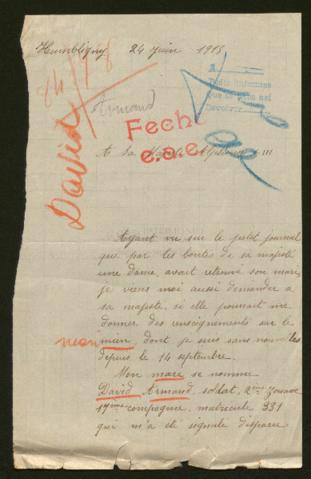 Humbligny 24 juin 1915
84/78
David
Armand
A
Fech
e.a.e.
A sa
Ayant vu sur le petit journal
que par les bontés de sa majesté
une dame, avait retrouvé son mari,
je viens moi aussi demander a
sa majeste, si elle pourrait me
donner des renseignements sur le
mari
mien, dont je suis sans nouvelles
depuis le 14 septembre.
Mon mari se nomme
David Armand, soldat, 2ème zouave
17ème compagnie, matricule 331
qui m'a été signalé disparu